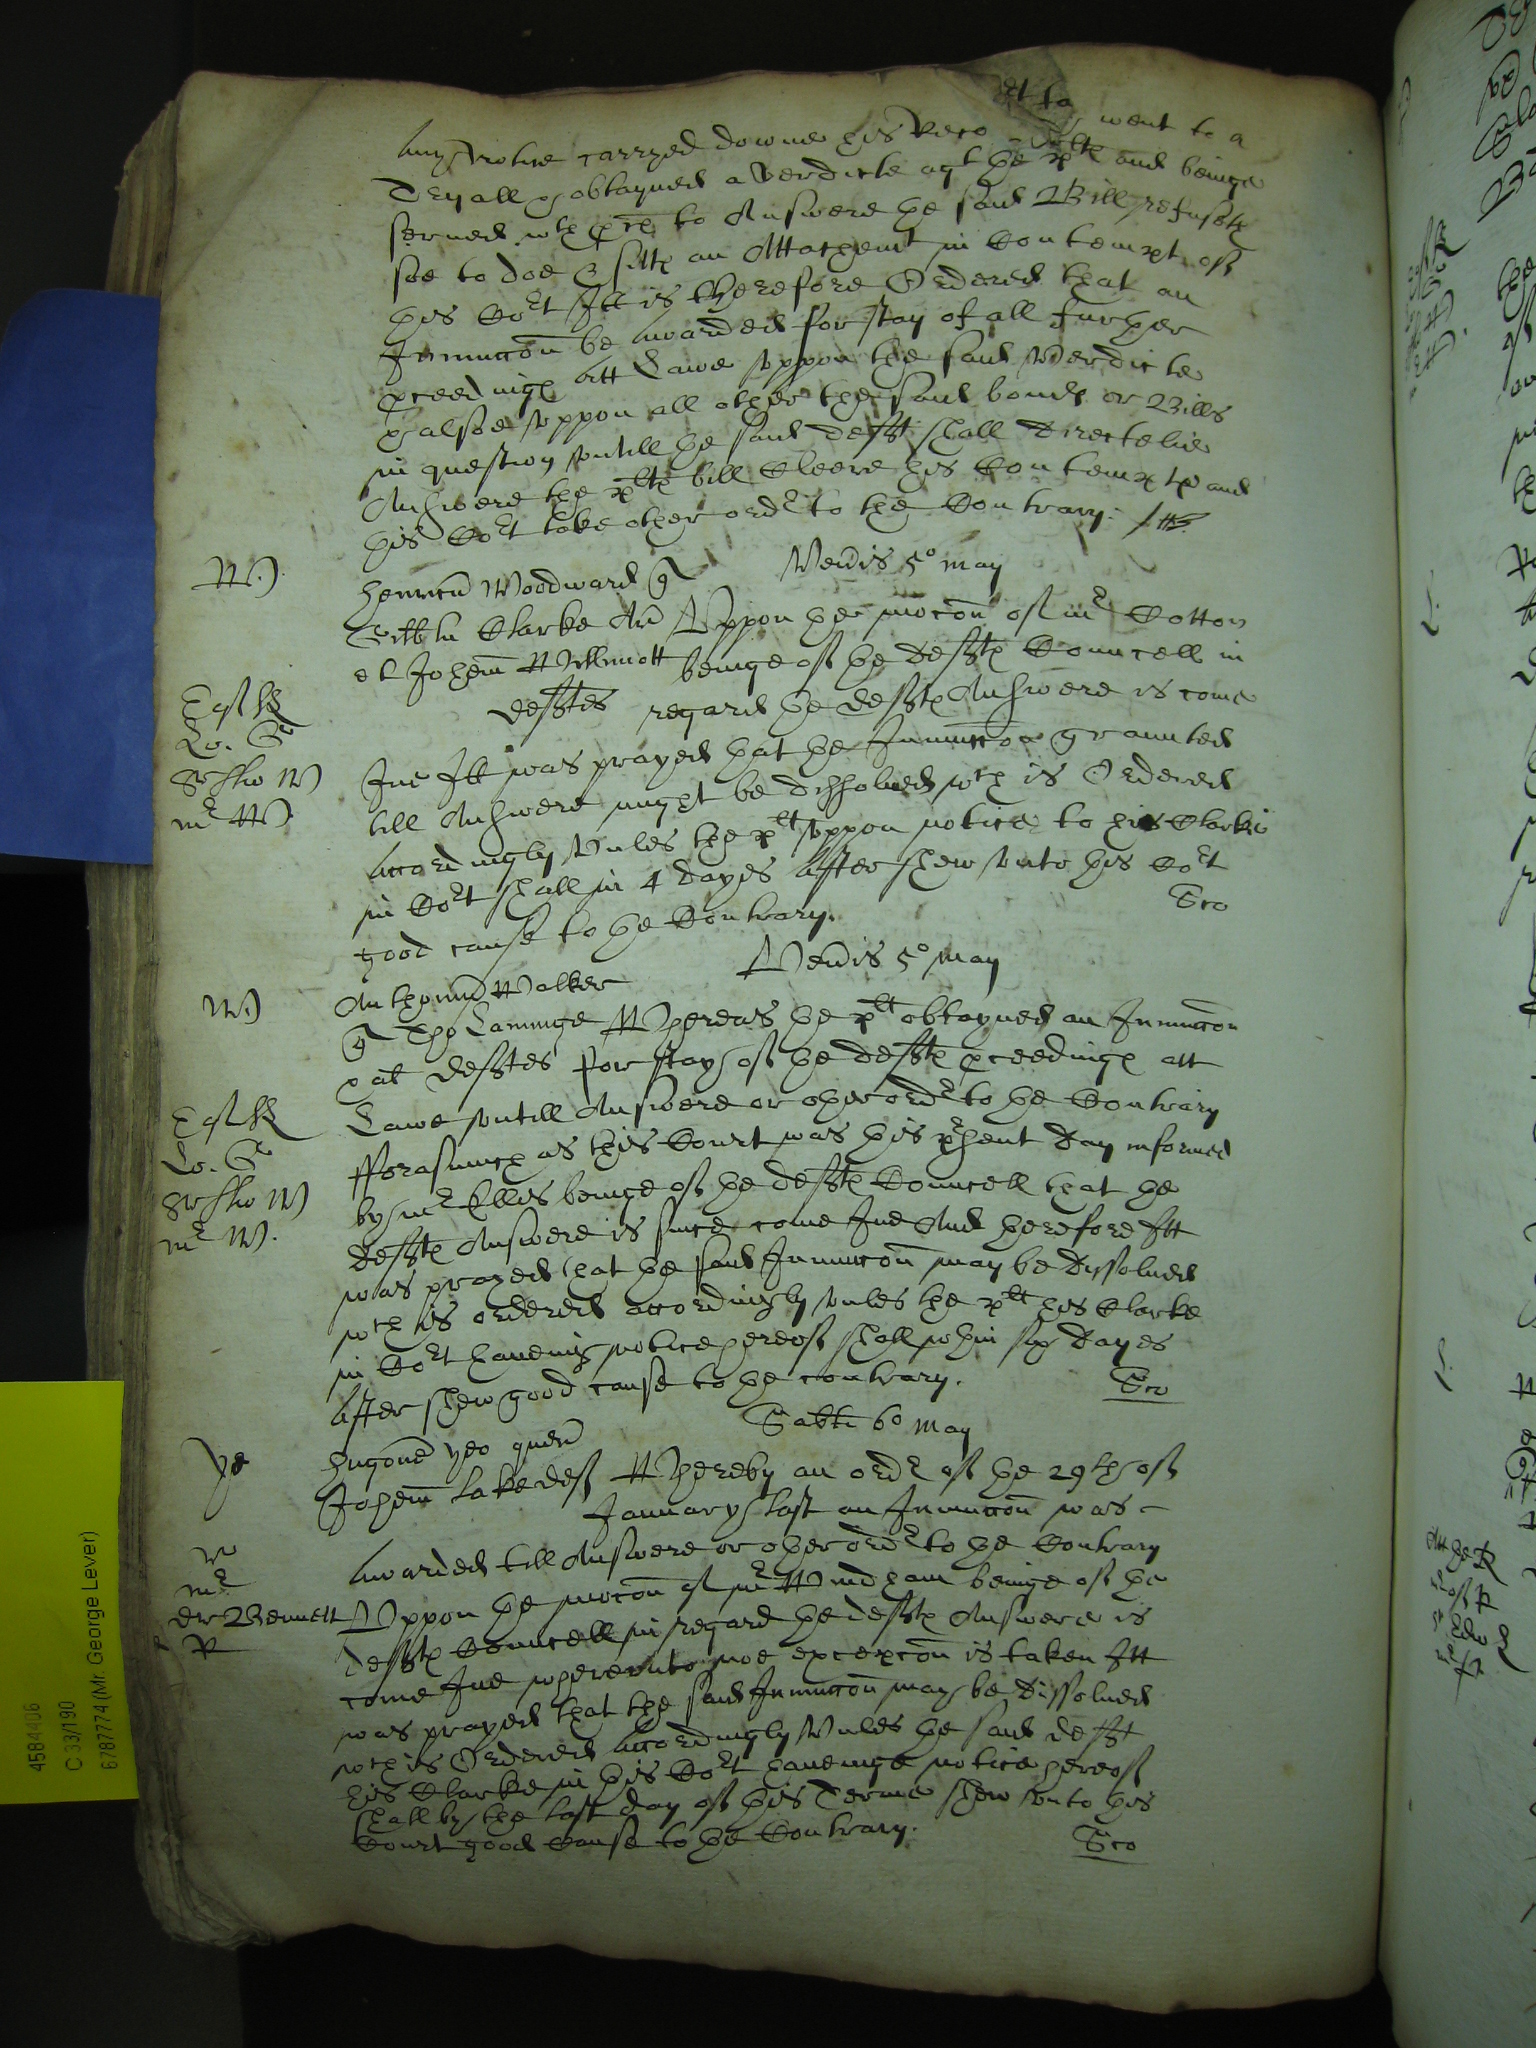 any Notice carryed downe his Reco went to a
Tryall & obtayned a verdicte agt the plt and beinge
served wth to Answere the said Bill refuseth
soe to doe & sitts an Attachemt in Contempt of
this Cort Itt is therefore Ordered that an
Iniunccon be awarded for stay of all further
pceedings att Lawe uppon the said Verdicte
& alsoe uppon all other the said bonds or Bills
in question untill the said deft shall directelie
Answere the plts bill Cleere his Contempts and
this Cort take other ordr to the Contrary.
W.
Veneris 5o May
Henricu Woodward q
Clarke Ar Uppon the mocon of mr Cotton
et Johem Willmott beinge of the defts Councell in
deftes regard the defts Answere is come
Ine Itt was prayed that the Iniunccon graunted
till Answere might be dissolved wch is Ordered
accordingly unles the plt uppon notice to his Clarke
in Cort shall in 4 dayes After shew unto this Cort
good cause to the Contrary.
Veneris 5o May
W.
Anthoniu Walker
q Tho Laminge Whereas the plt obtayned an Iniunccon
deftes for stay of the defts pceedings att
Lawe untill Answere or other ordr to the Contrary
Forasmuch as this Court was this psent day informed
by mr Ellis beinge of the defts Councell that the
defts Answere is since come Ine And therefore Itt
was prayed that the said Iniunccon may be dissolved
wch is ordered accordingly unles the plt his Clarke
in Cort haveing notice hereof shall wthin six dayes
After shew good cause to the contrary.
Sabti 6o May
ye
Hugone yeo quer
Johem Lake def Whereby an ordr of the 29th of
January last an Iniunccon was
Awarded till Answere or other ordr to the Contrary
dr Bennett Uppon the mocon of mr Windham beinge of the
defts Councell in regard the defts Answere is
come Ine whereunto noe excepcon is taken Itt
was prayed that the said Iniunccon may be dissolved
wch is Ordered accordingly Unles the said deft
his Clarke in this Cort haveinge notice hereof
shall by the last day of this Terme shew unto this
Court good Cause to the Contrary.
4584406
C 33/190
6787774 (Mr. George Lever)